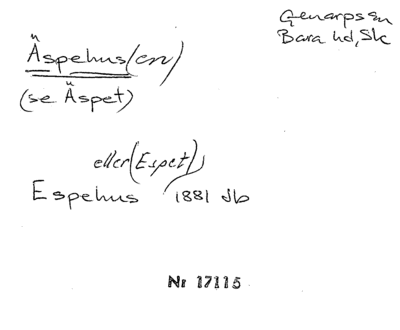 Genarps sn
Bara hd, Sk
Äspehus(en)
(se Äspet)
eller (Espet)
Espehus 1881 Jb
Nr 17115